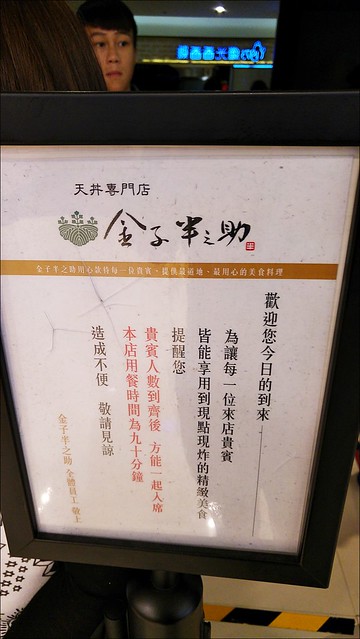 天丼專門店
金子半之助
金子半之助用心款待每一位貴賓、提供最道地、最用心的美食料理
歡迎您今日的到來
為讓每一位來店貴賓
皆能享用到現點現炸的精緻美食
提醒您
貴賓人數到齊後 方能一起入席
本店用餐時間為九十分鐘
造成不便 敬請見諒
金子半之助 全體員工 敬上